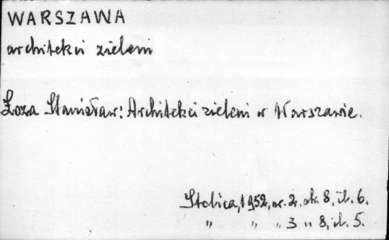 WARSZAWA
architekci zieleni
Łoza Stanisław: Architekci zieleni w Warszawie.
Stolica, 1952, nr. 2, str. 8, il. 6.
" " " 3 " 8, il. 5.